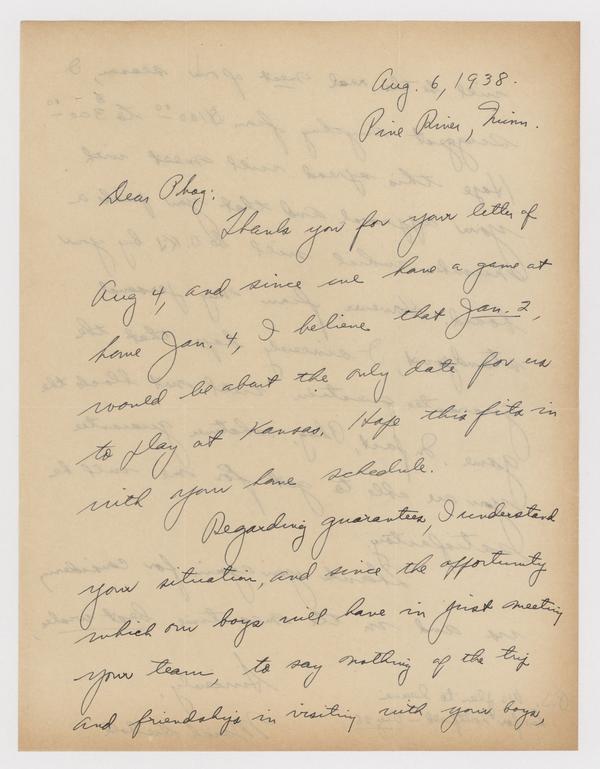 Aug. 6, 1938.
Pine River, Minn.
Dear Phog:
Thank you for your letter of
Aug 4, and since we have a game at
home Jan. 4, I believe that Jan. 2,
would be about the only date for us
to play at Kansas. Hope this fits in
with your home schedule.
Regarding guarantees, I understand
your situation, and since the opportunity
which our boys will have in just meeting
your team, to say nothing of the trip
and friendships in visiting with your boys,